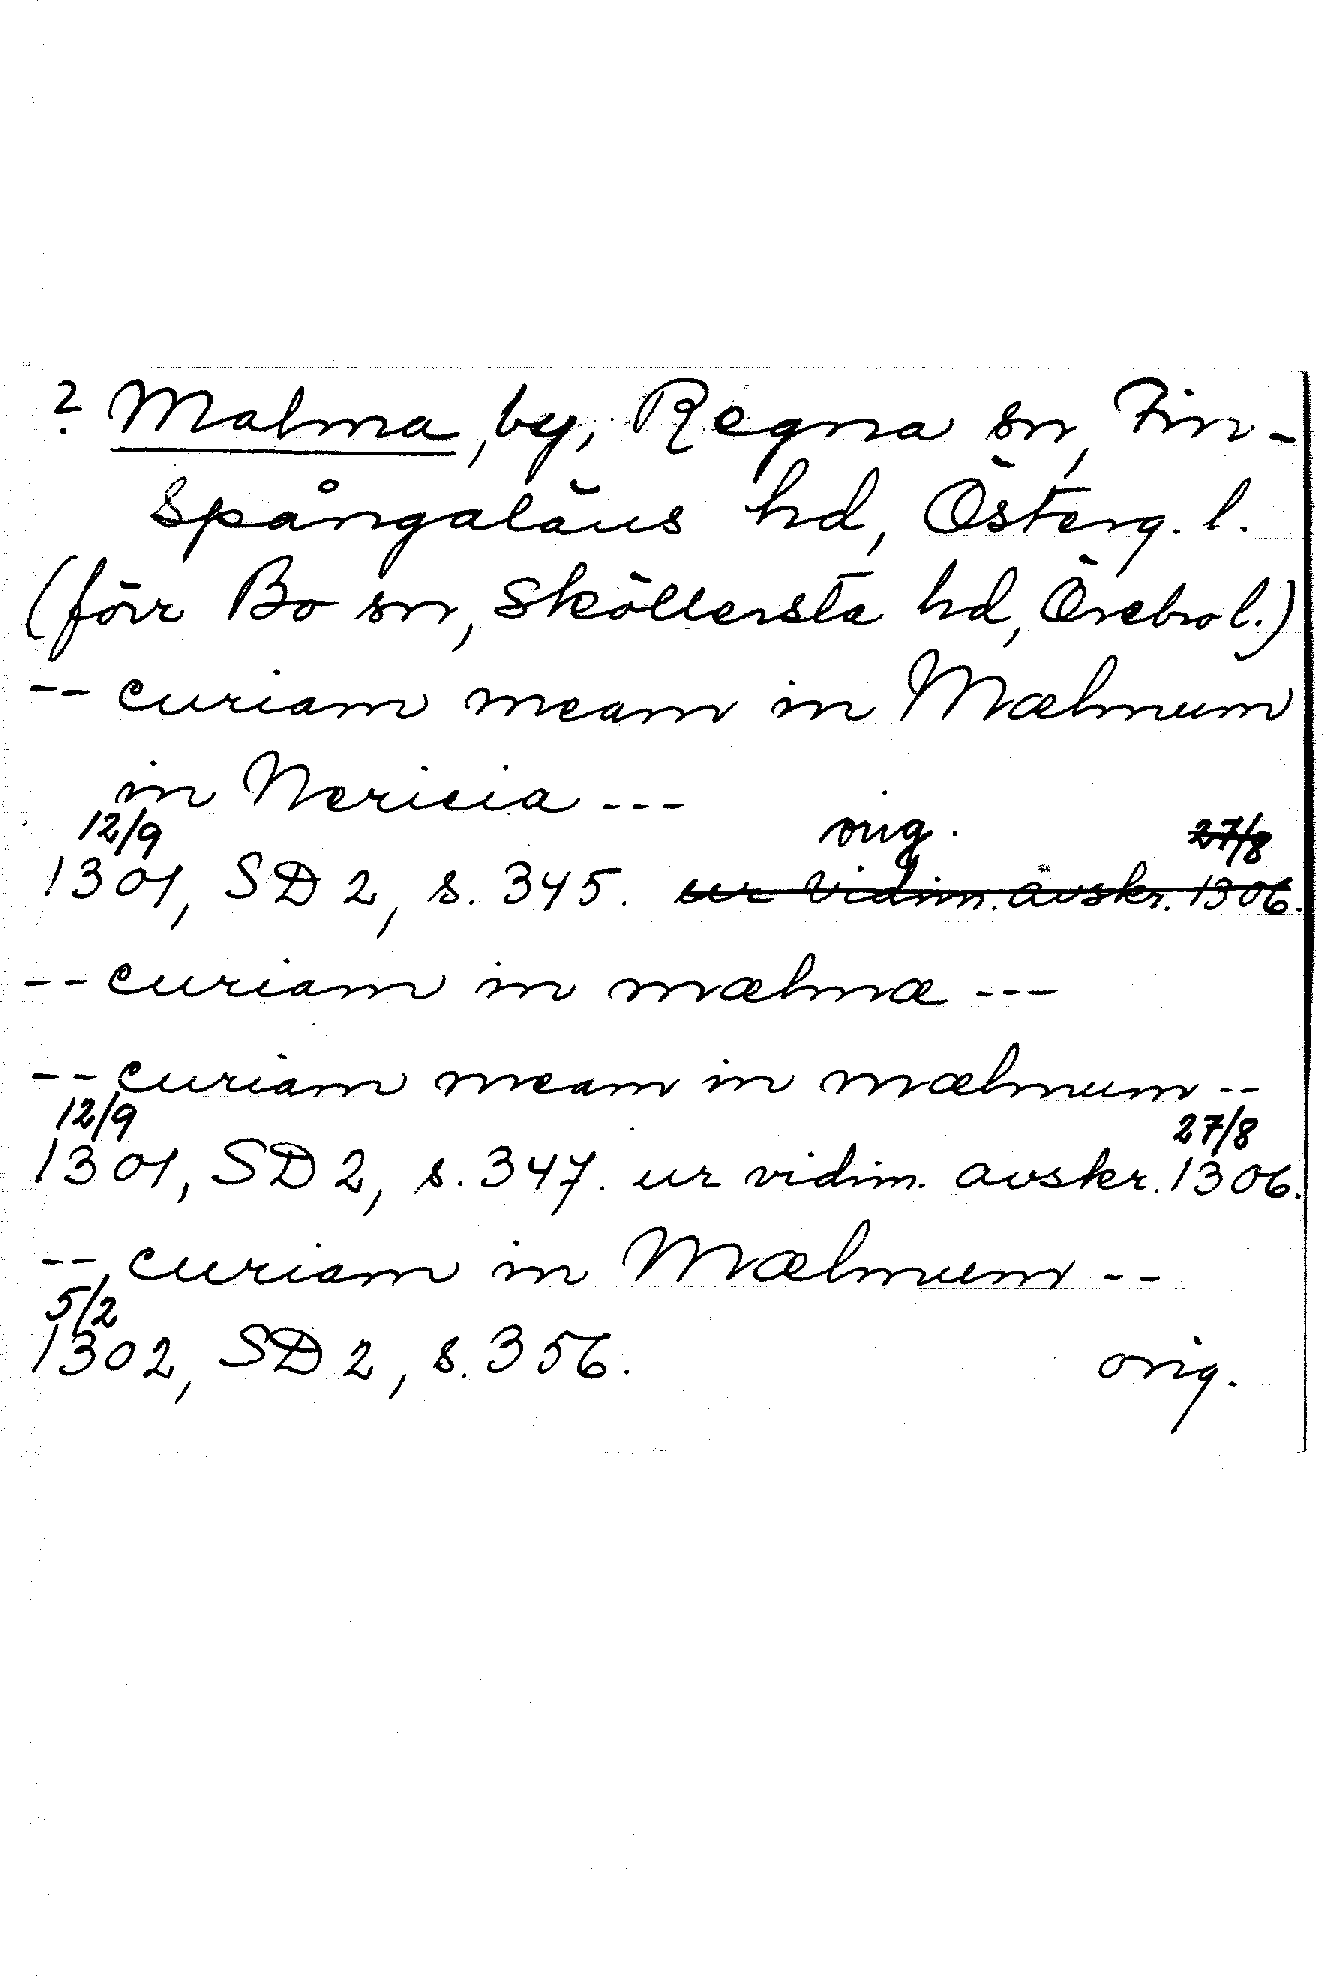 ? Malma, by, Regna sn, Fin-
spångaläns hd, Österg. l.
(förr Bo sn, Sköllersta hd, Örebro l.)
-- curiam meam in Mælmum
in Nericia ---
12/9 orig. 27/8
1301, SD 2, s. 345. ur vidim. avskr. 1306.
-- curiam in mælmæ ---
-- curiam meam in mælmum --
12/9 27/8
1301, SD 2, s. 347. ur vidim. avskr. 1306.
-- curiam in Mælmum --
5/2
1302, SD 2, s. 356. orig.